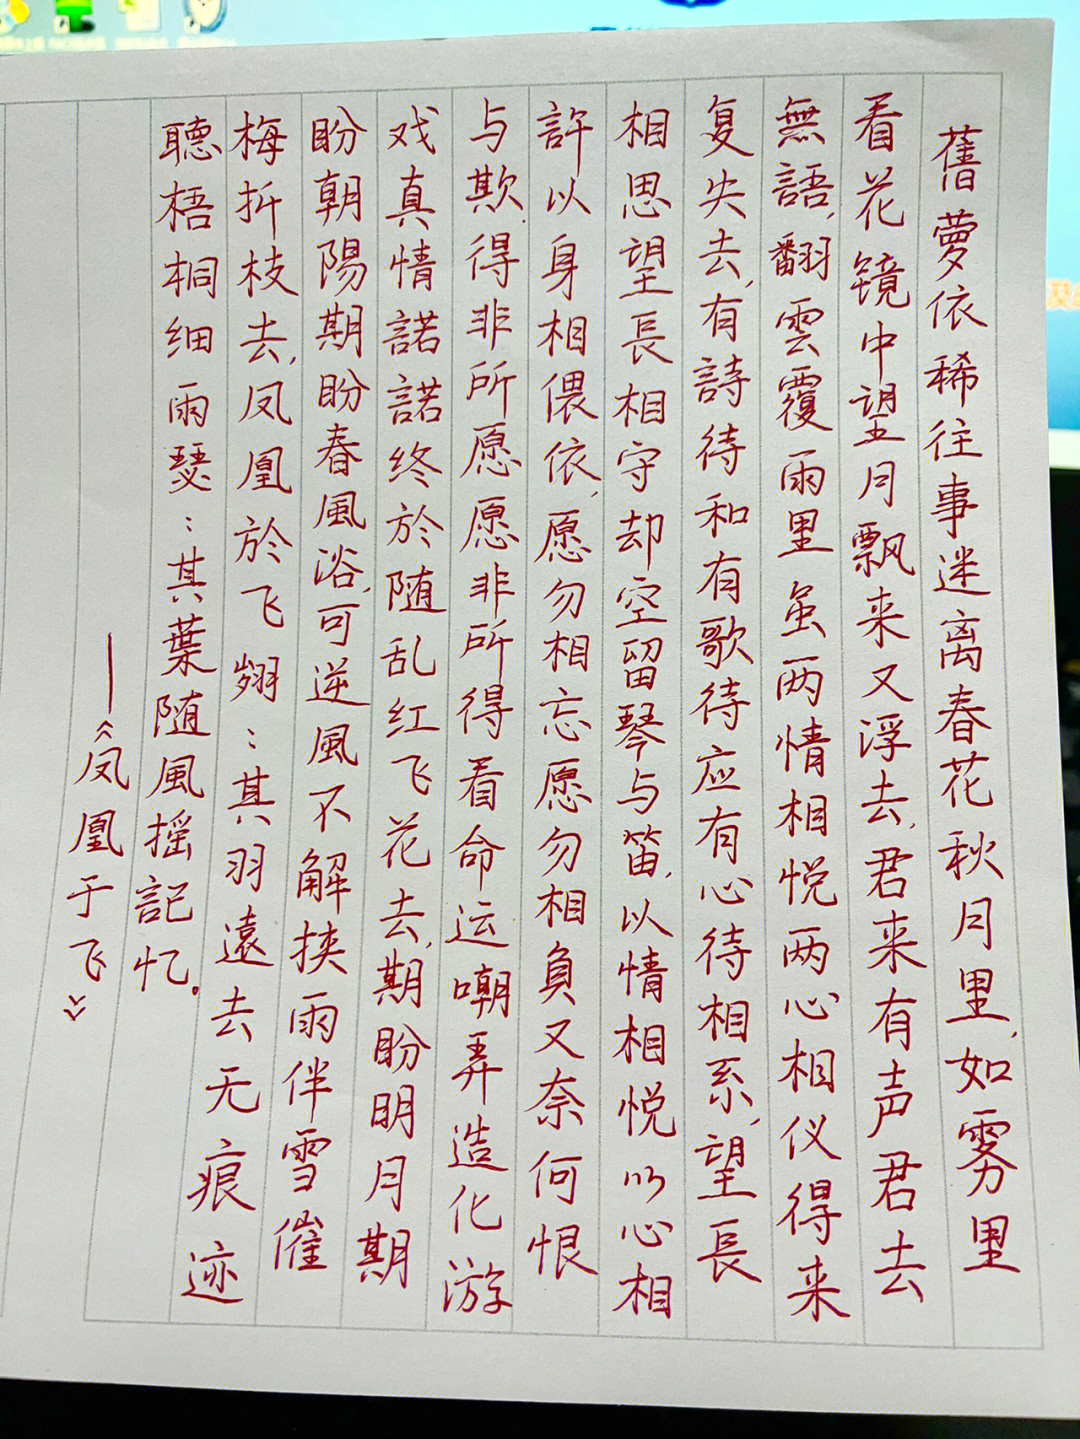 舊夢依稀往事迷离春花秋月里,如雾里
看花镜中望月飘来又浮去,君来有声君去
無語,翻雲覆雨里虽两情相悦两心相仪得来
复失去,有詩待和有歌待应有心待相系,望長
相思望長相守却空留琴与笛,以情相悦以心相
許以身相偎依,愿勿相忘愿勿相負又奈何恨
与欺.得非所愿愿非所得看命运嘲弄造化游
戏真情諾諾终於随乱红飞花去,期盼明月期
盼朝陽期盼春風浴,可逆風不解挟雨伴雪催
梅折枝去,凤凰於飞翙:其羽遠去无痕迹
聽梧桐细雨瑟:其葉随風摇記忆.
——《凤凰于飞》